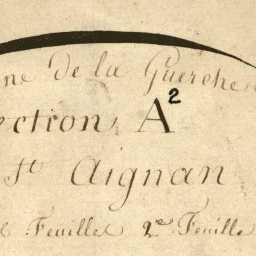 ne de la Guerche
ection A²
St Aignan
Feuille 2me Feuille